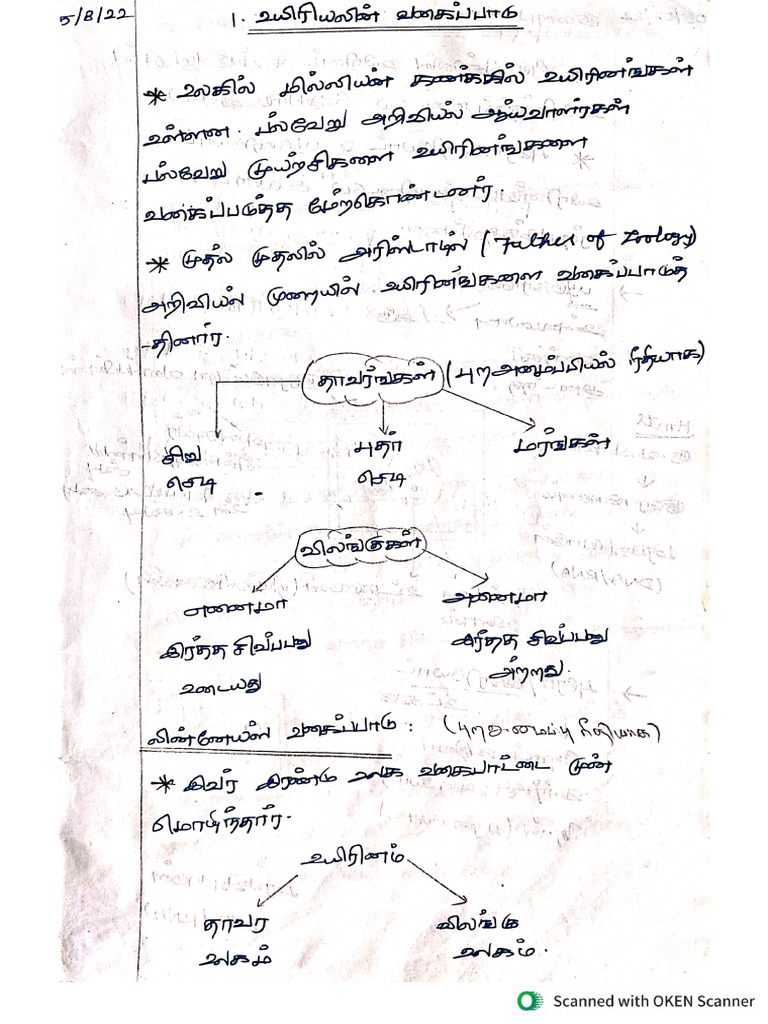 5/8/22
1. உயிரியலின் வகைப்பாடு
* உலகில் மில்லியன் கணக்கில் உயிரினங்கள்
உள்ளன. பல்வேறு அறிவியல் ஆய்வாளர்கள்
பல்வேறு முயற்சிகளை உயிரினங்களை
வகைப்படுத்த மேற்கொண்டனர்.
* முதல் முதலில் அரிஸ்டாடில் (Father of Zoology)
அறிவியல் முறையில் உயிரினங்களை வகைப்பாடுத்
-தினார்.
தாவரங்கள் (புறஅமைப்பியல் ரீதியாக)
சிறு புதர் மரங்கள்
செடி செடி
விலங்குகள்
எனைமா அனைமா
இரத்த சிவப்பணு இரத்த சிவப்பணு
உடையது அற்றது.
லின்னேயஸ் வகைப்பாடு : (புற அமைப்பு ரீதியாக)
* இவர் இரண்டு உலக வகைபாட்டை முன்
மொழிந்தார்.
உயிரினம்
தாவர விலங்கு
உலகம் உலகம்.
Scanned with OKEN Scanner